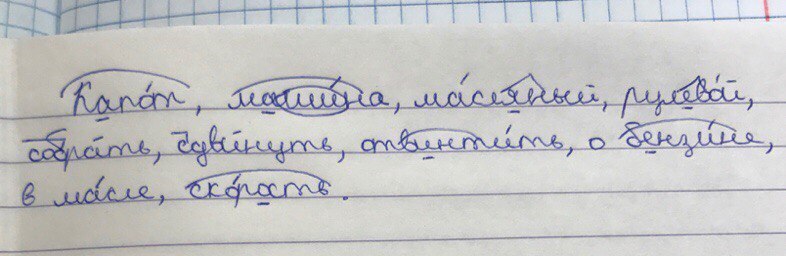 Капот, машина, масляный, рулевой,
собрать, сдвинуть, отвинтить, о бензине,
в масле, скорость.